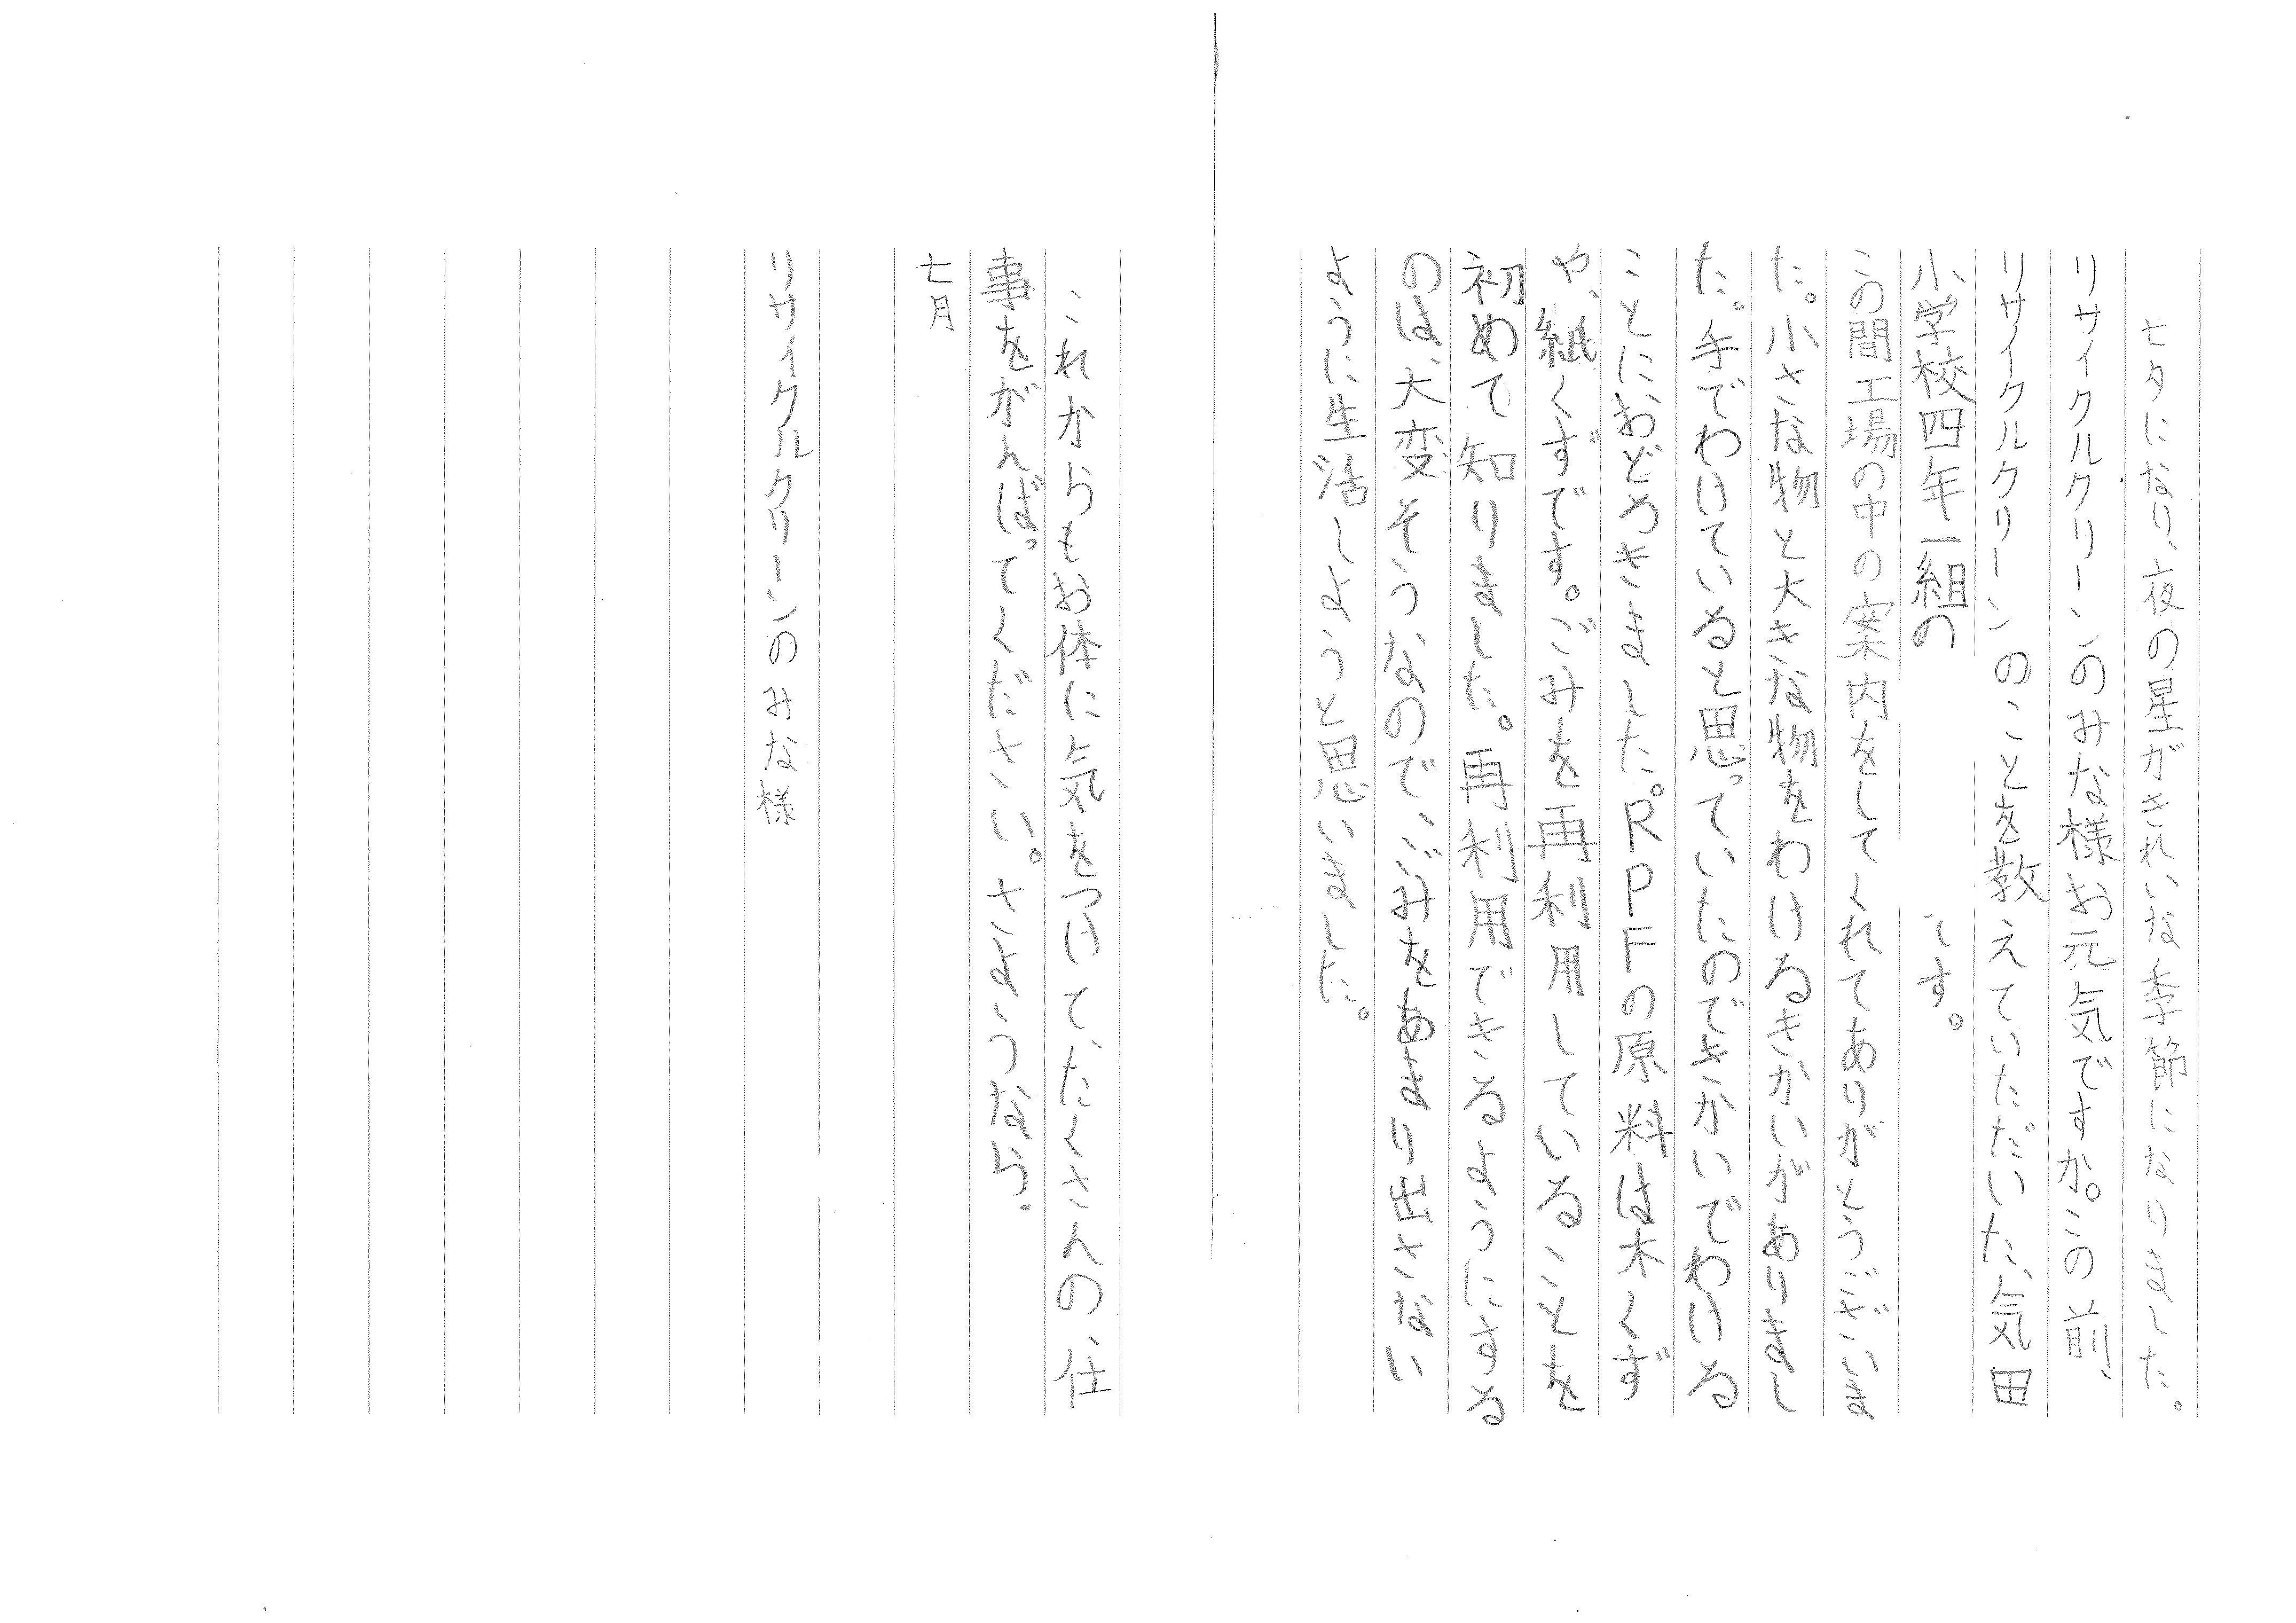 七夕になり、夜の星がきれいな季節になりました。
リサイクルクリーンのみな様お元気ですか。この前、
リサイクルクリーンのことを教えていただいた、気田
小学校四年一組の　　　です。
この間工場の中の案内をしてくれてありがとうございまし
た。小さな物と大きな物をわけるきかいがありまし
た。手でわけていると思っていたのできかいでわける
ことにおどろきました。RPFの原料は木くず
や、紙くずです。ごみを再利用していることを
初めて知りました。再利用できるようにする
のは、大変そうなので、ごみをあまり出さない
ように生活しようと思いました。
これからもお体に気をつけて、たくさんの仕
事をがんばってください。さようなら。
七月
リサイクルクリーンのみな様